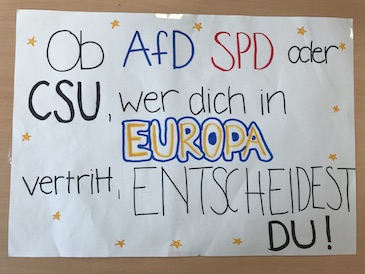 Ob AfD SPD oder
CSU, wer dich in
EUROPA
vertritt, ENTSCHEIDEST
DU!